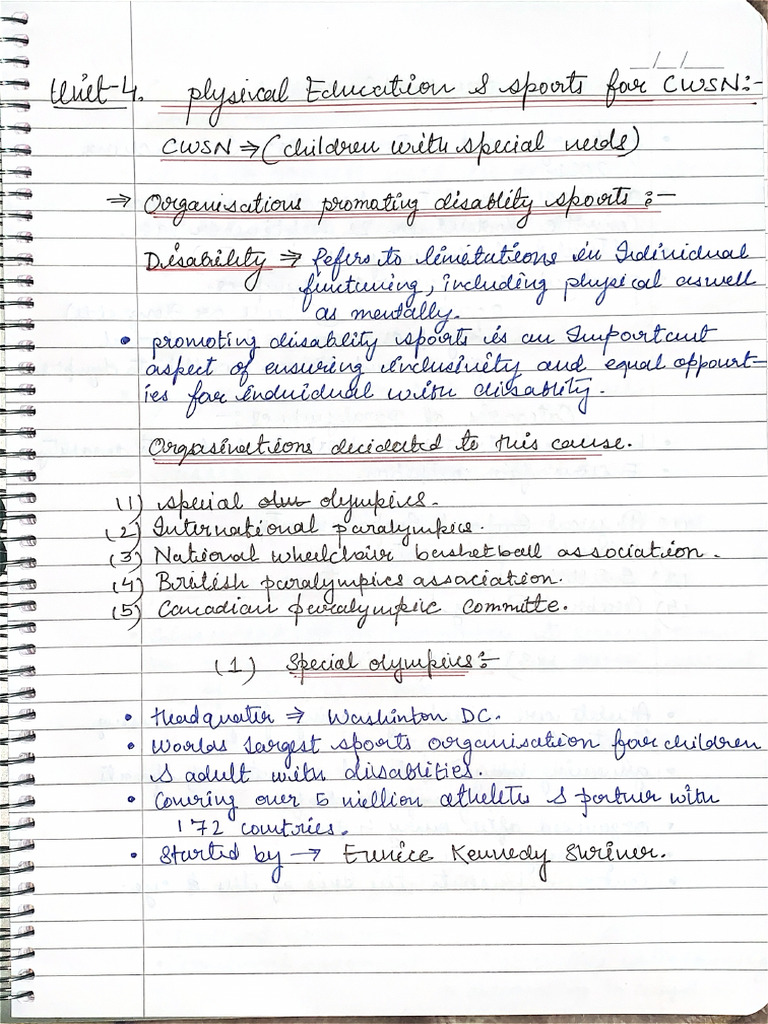 _/_/_
Unit-4. physical Education & sports for CWSN:-
CWSN ⇒ (children with special needs)
⇒ Organisations promoting disablity sports :-
Disability ⇒ Refers to limitations in Individual
functuning, including physical aswell
as mentally.
• promoting disablity sports is an Important
aspect of ensuring inclusivity and equal opport-
ies for individual with disablity.
Orgasinations decidated to this cause.
(1) special olympics.
(2) International paralympics.
(3) National wheelchair basketball association.
(4) British paralympics association.
(5) Canadian paralympic committe.
(1) Special olympics:-
• Headquater ⇒ Washinton DC.
• Worlds largest sports organisation for children
& adult with disablities.
• Couring over 5 million atheletes & partner with
172 countries.
• Started by → Eunice Kennedy Shriner.